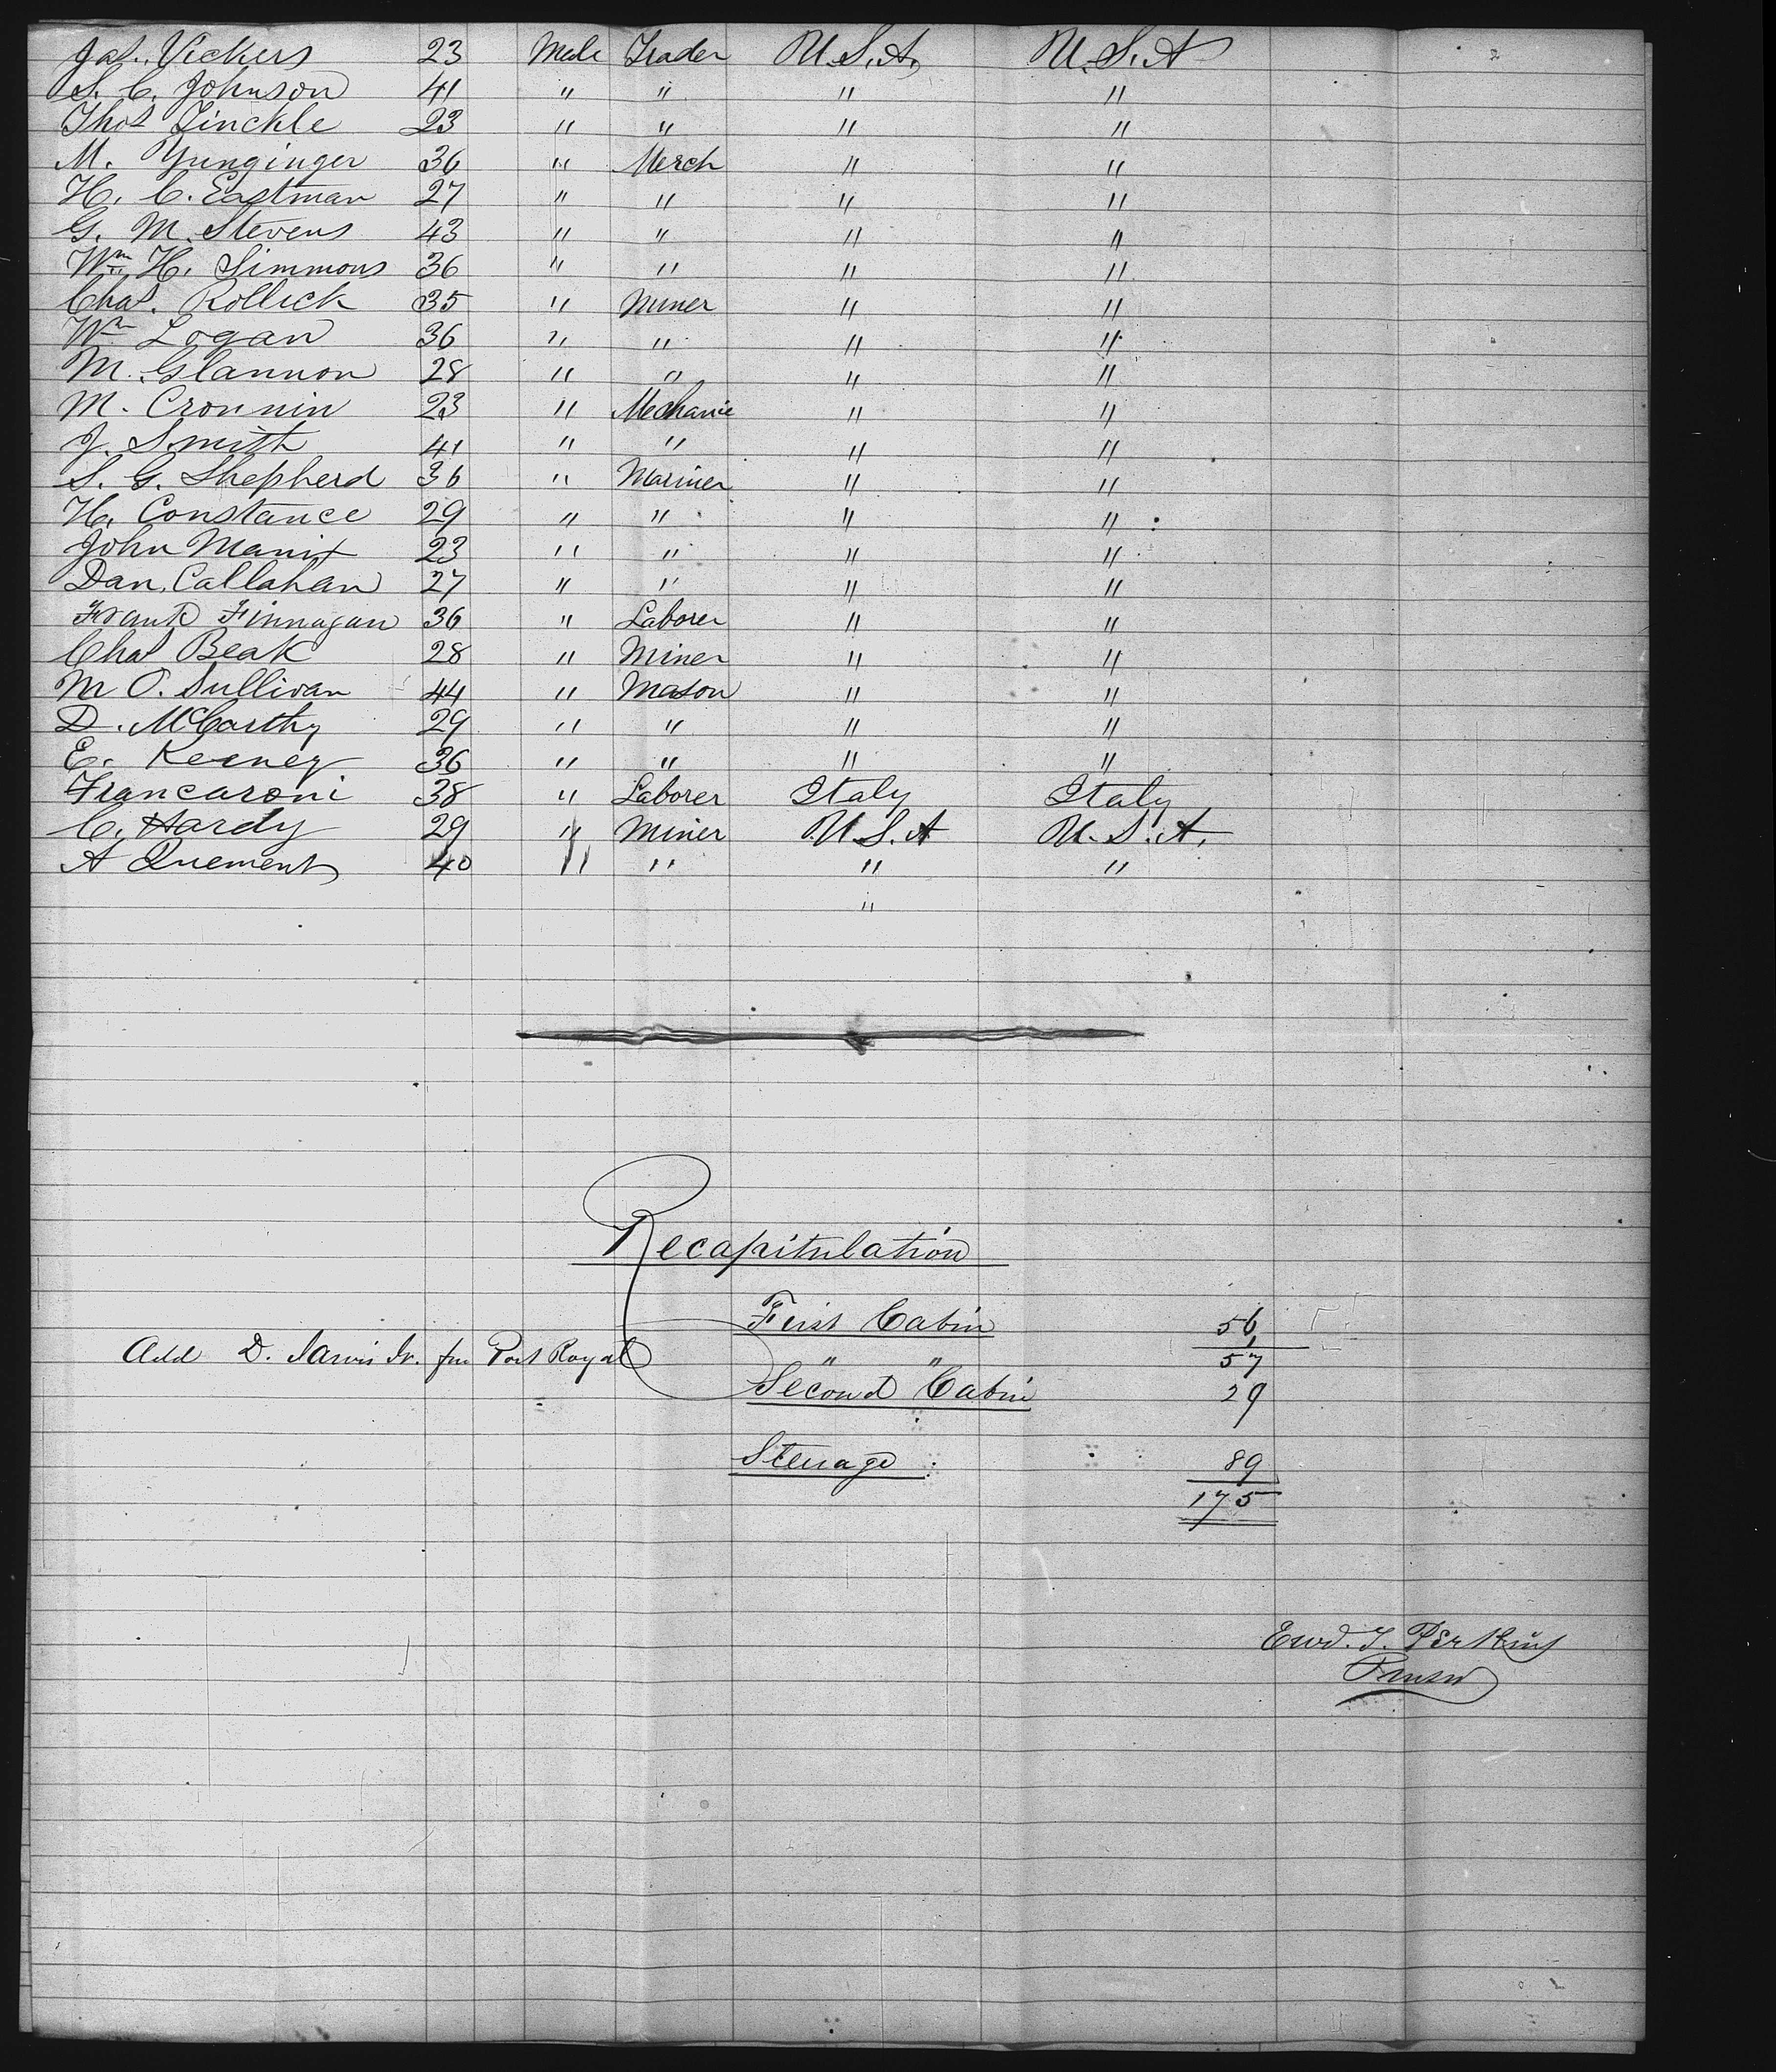 Jas. Vickers 23 Male Trader U.S.A. U.S.A
S. C. Johnson 41 " " " "
Thos Zinckle 23 " " " "
M. Yunginger 36 " Merch " "
H. C. Eastman 27 " " " "
G. M. Stevens 43 " " " "
Wm H. Simmons 36 " " " "
Chas. Rollick 35 " Miner " "
Wm Logan 36 " " " "
M. Glannon 28 " " " "
M. Cronnin 23 " Mechanic " "
J. Smith 41 " " " "
S. G. Shepherd 36 " Mariner " "
H. Constance 29 " " " "
John Manix 23 " " " "
Dan. Callahan 27 " " " "
Frank Finnagan 36 " Laborer " "
Chas Beak 28 " Miner " "
M O. Sullivan 44 " Mason " "
D. McCarthy 29 " " " "
E. Keeney 36 " " " "
Francaroni 38 " Laborer Italy Italy
C. Hardy 29 " Miner U.S.A U.S.A.
A Quement 40 " " " "
"
Recapitulation
First Cabin 56
Add D. Jarvis Jr. fm Port Royal " " 1
57
Second Cabin 29
Steerage 89
175
Ewd. T. Perkins
Purser